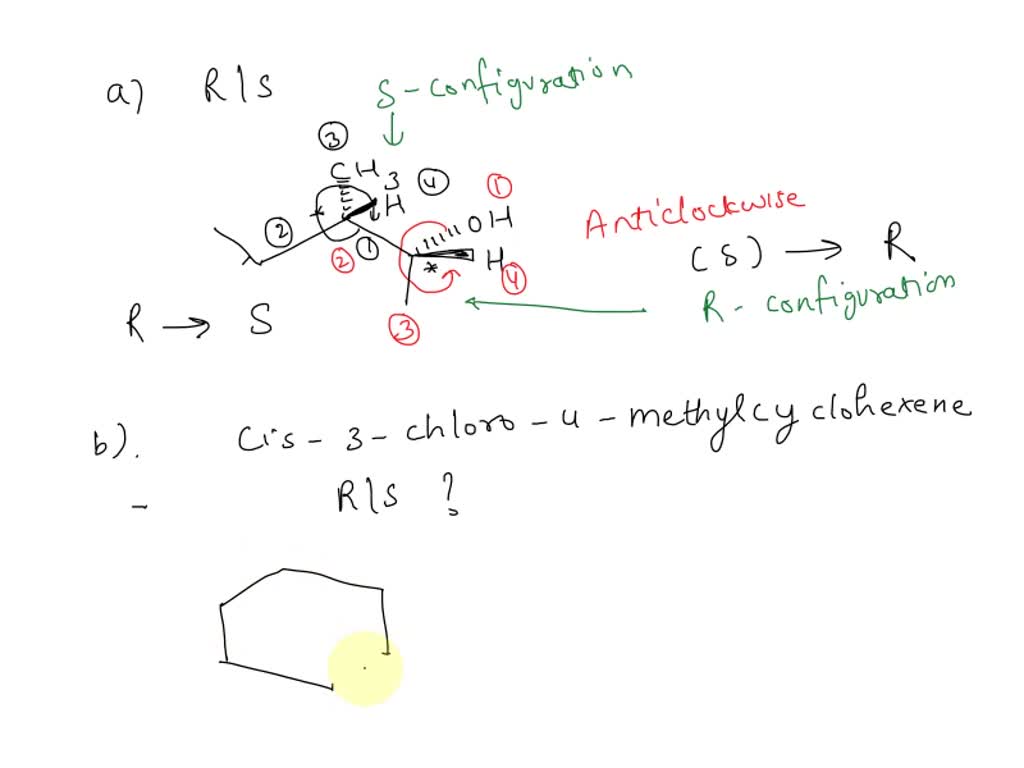 a) R|S S-configuration
③
CH3 ④ ①
H OH Anticlockwise
② ② ① * H ④ (S) → R
R → S ③ R - configuration
b). Cis-3-chloro-4-methylcyclohexene
- R|S ?